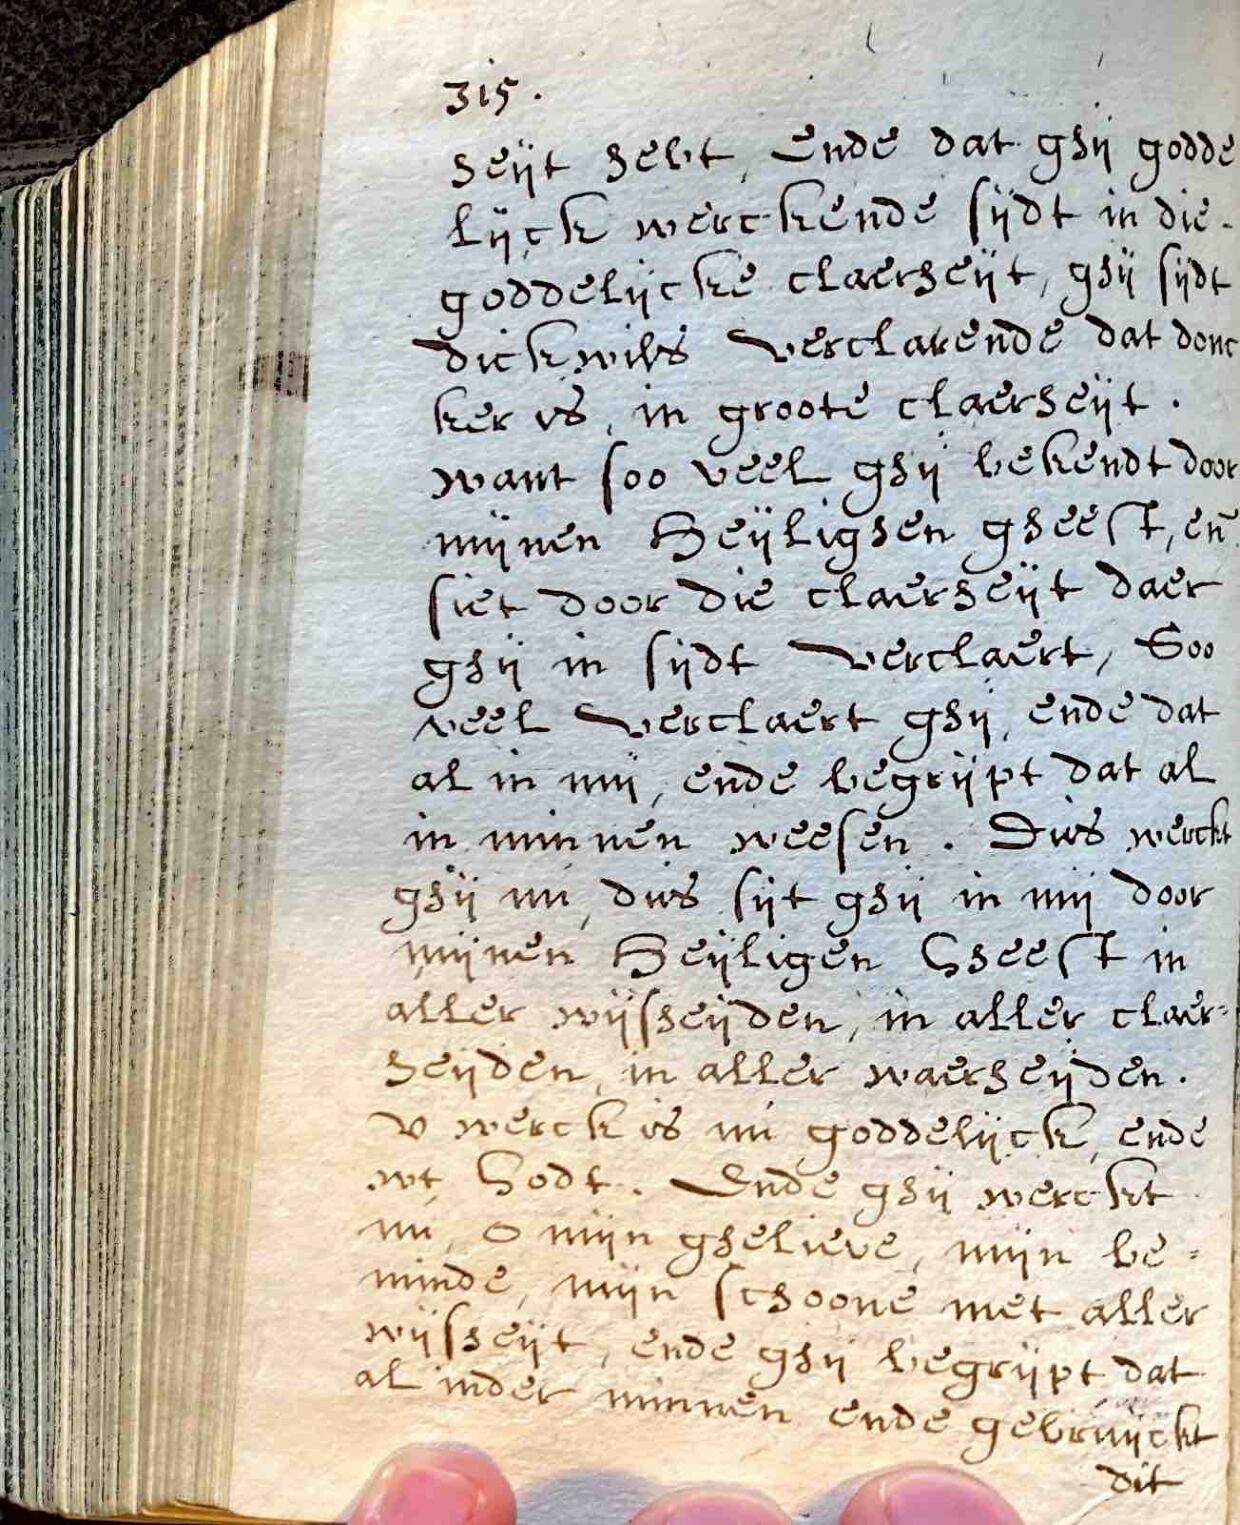 315.
heÿt hebt, Ende dat ghÿ godde
lÿck werckende sÿdt in die.
goddelÿcke claerheÿt, ghÿ sÿdt
dickwils verclarende dat donc
ker is, in groote claerheÿt.
want soo veel ghÿ bekendt door
mÿnen Heÿlighen gheest, en̄
siet door die claerheÿt daer
ghÿ in sÿdt verclaert, Soo
veel verclaert ghÿ, ende dat
al in mÿ, ende begrÿpt dat al
in minnen weesen. Dus werckt
ghÿ nu, dus sÿt ghÿ in mÿ door
mÿnen Heÿligen Gheest in
aller wÿsheÿden, in aller claer=
heÿden, in aller waerheÿden.
v werck is nu goddelÿck, ende
wt Godt. Ende ghÿ werckt
nu, o mÿn ghelieve, mÿn be=
minde, mÿn schoone met aller
wÿsheÿt, ende ghÿ begrÿpt dat
al inder minnen ende gebruÿckt
dit